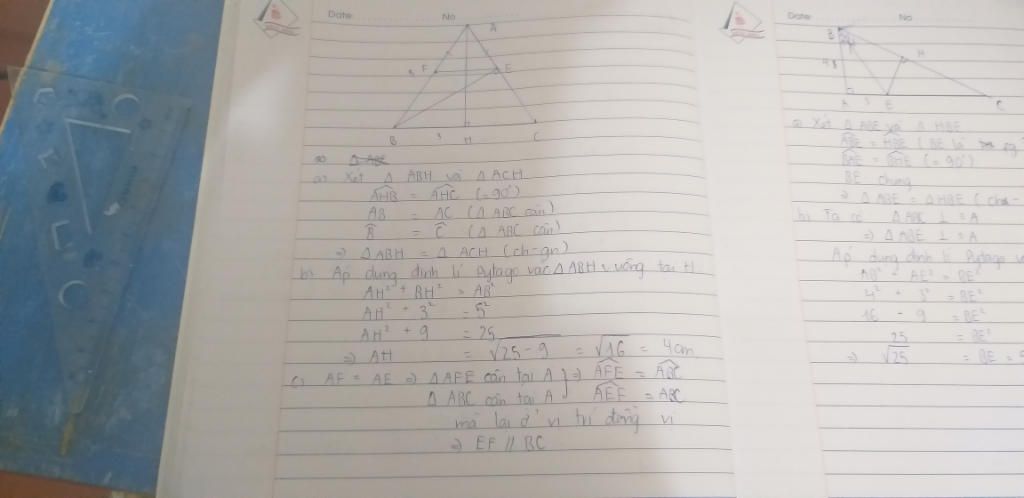 Date: No
A
5 F E
B 3 H C
a) △ ABE
a) Xét △ ABH và △ ACH
AHB = AHC (= 90°)
AB = AC (△ ABC cân)
B = C (△ ABC cân)
=> △ ABH = △ ACH (ch-gn)
b) Áp dụng định lí Pytago vào △ ABH vuông tại H
AH² + BH² = AB²
AH² + 3² = 5²
AH² + 9 = 25
=> AH = √25 - 9 = √16 = 4cm
c) AF = AE => △ AFE cân tại A } => AFE = ABC
△ ABC cân tại A } AEF = ABC
mà lại ở vị trí đồng vị
=> EF // BC
Date No
B
H
4
A 3 E C
a) Xét △ ABE và △ HBE
ABE = HBE (BE là
BAE = BHE (= 90°)
BE chung
=> △ ABE = △ HBE (ch-
b) Ta có △ ABC ⊥ = A
=> △ ABE ⊥ = A
Áp dụng định lí Pytago
AB² - AE² = BE²
4² + 3² = BE²
16 - 9 = BE²
25 = BE²
=> √25 = BE =